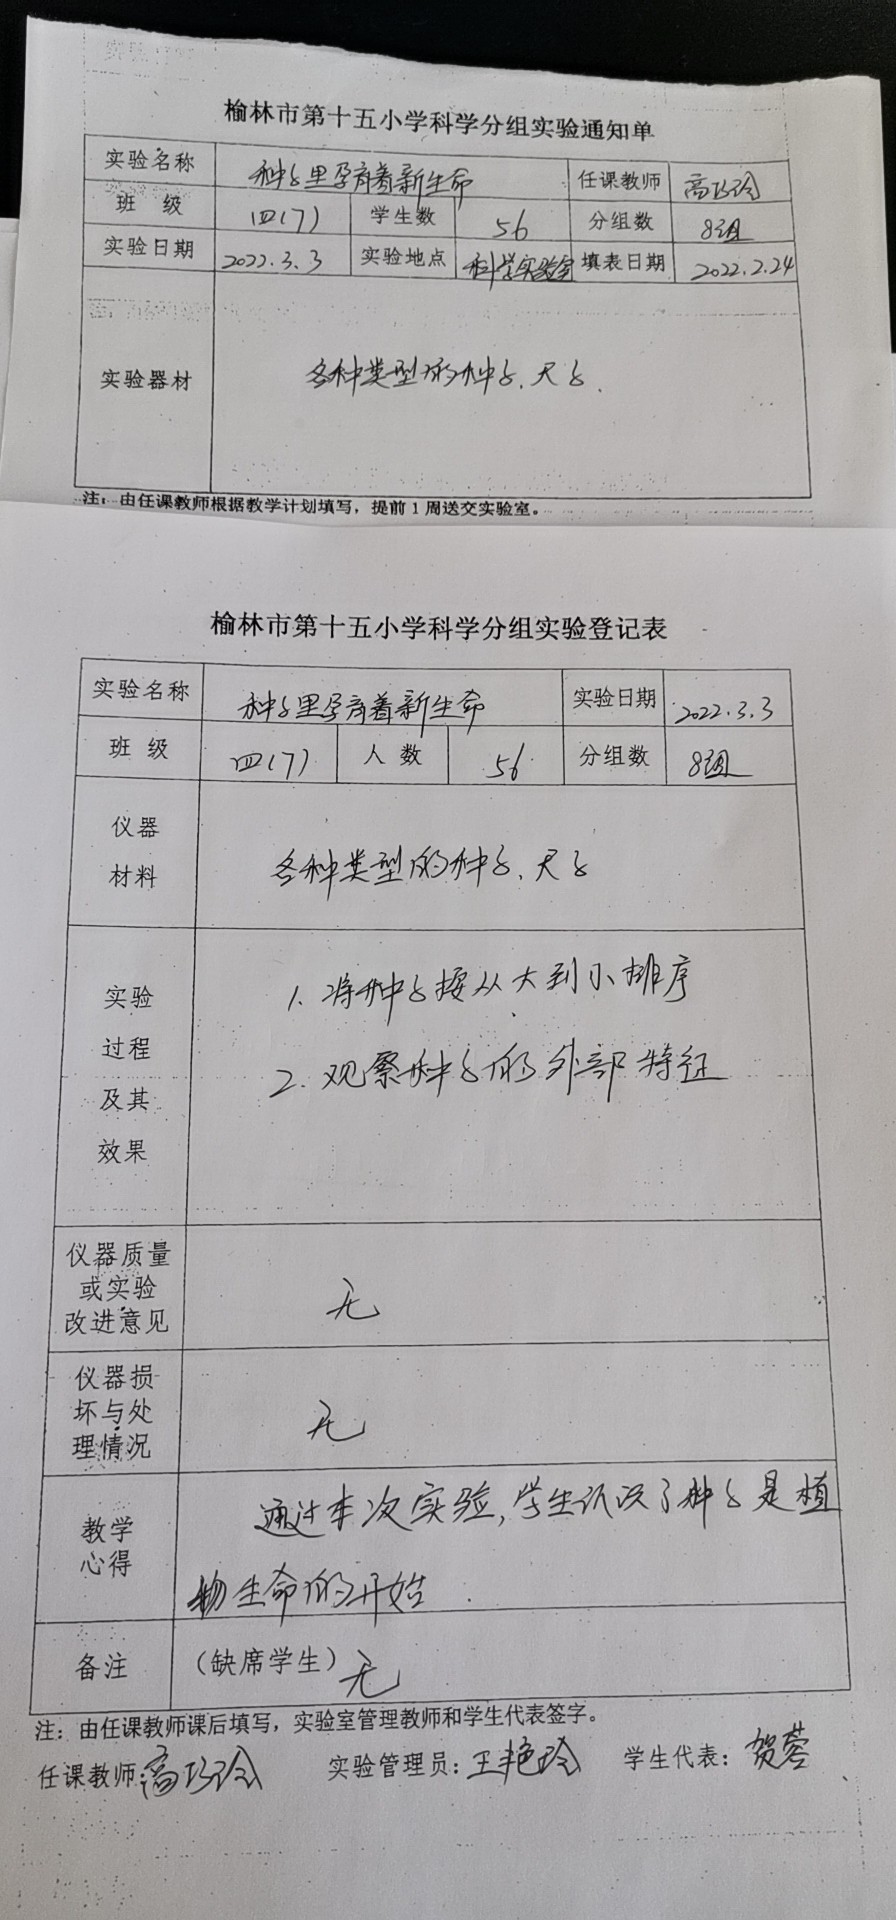 榆林市第十五小学科学分组实验通知单
实验名称 种子里孕育着新生命 任课教师 高巧玲
班 级 四(7) 学生数 56 分组数 8组
实验日期 2022.3.3 实验地点 科学实验室 填表日期 2022.2.24
实验器材 各种类型的种子、尺子.
注：由任课教师根据教学计划填写，提前1周送交实验室。
榆林市第十五小学科学分组实验登记表
实验名称 种子里孕育着新生命 实验日期 2022.3.3
班 级 四(7) 人 数 56 分组数 8组
仪器
材料
各种类型的种子、尺子
实验
过程
及其
效果
1. 将种子按从大到小排序
2. 观察种子的外部特征
仪器质量
或实验
改进意见
无
仪器损
坏与处
理情况
无
教学
心得
通过本次实验,学生认识了种子是植
物生命的开始.
备注 （缺席学生）无
注：由任课教师课后填写，实验室管理教师和学生代表签字。
任课教师:高巧玲 实验管理员：王艳玲 学生代表：贺蓉